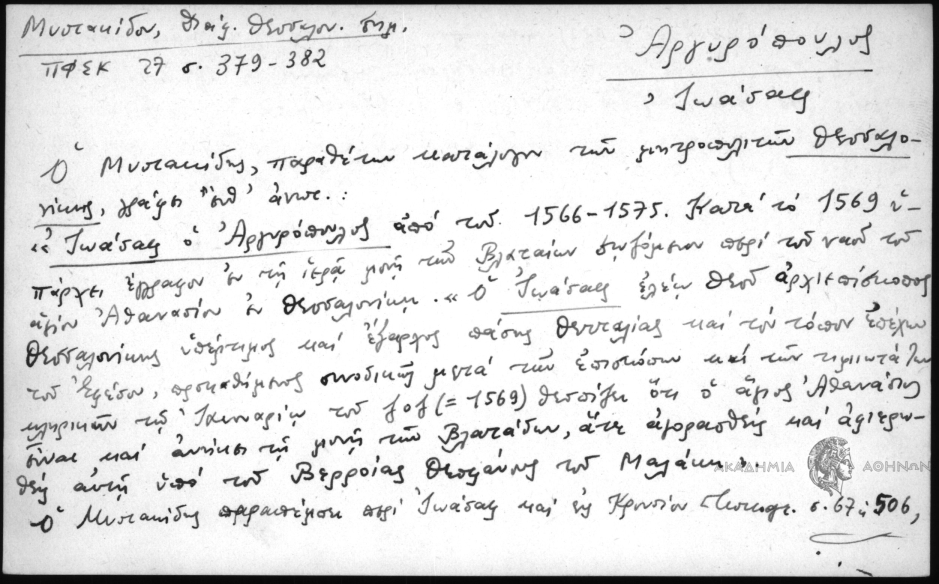 Μυστακίδου, Θεσσαλον. σημ.
ΠΦΣΚ 27 σ. 379-382
Ἀργυρόπουλος
Ἰωάσαφ
Ὁ Μυστακίδης, παραθέτων κατάλογον τῶν μητροπολιτῶν Θεσσαλο-
νίκης, γράφει
"Ἰωάσαφ ὁ Ἀργυρόπουλος ἀπό τοῦ 1566-1575. Κατά τό 1569 ὑ-
πάρχει ἔγγραφον ἐν τῇ ἱερᾷ μονῇ τῶν Βλαταίων σωζόμενον περί τοῦ ναοῦ τοῦ
ἁγίου Ἀθανασίου ἐν Θεσσαλονίκῃ. «Ὁ Ἰωάσαφ ἐλέῳ Θεοῦ ἀρχιεπίσκοπος
Θεσσαλονίκης ὑπέρτιμος καί ἔξαρχος πάσης Θετταλίας καί τόν τόπον ἐπέχων
τοῦ Ἐφέσου, προκαθήμενος συνοδικῶς μετά τῶν ἐπισκόπων καί τῶν τιμιωτάτων
κληρικῶν τῷ Ἰανουαρίῳ τοῦ ζοζ (=1569) θεσπίζει ὅτι ὁ ἅγιος Ἀθανάσιος
εἶναι καί ἀνήκει τῇ μονῇ τῶν Βλατάδων, ἅτε ἀγορασθείς καί ἀφιερω-
θείς αὐτῇ ὑπό τοῦ Βερροίας Θεοφάνους τοῦ Μαλάκη».
Ὁ Μυστακίδης παραπέμπει περί Ἰωάσαφ καί εἰς Κρουσίου σ. 67 506,
ΑΚΑΔΗΜΙΑ ΑΘΗΝΩΝ